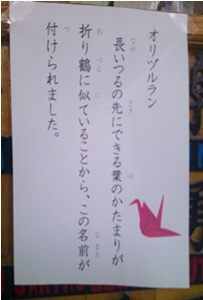 オリヅルラン
長いつるの先にできる葉のかたまりが
折り鶴に似ていることから、この名前が
付けられました。